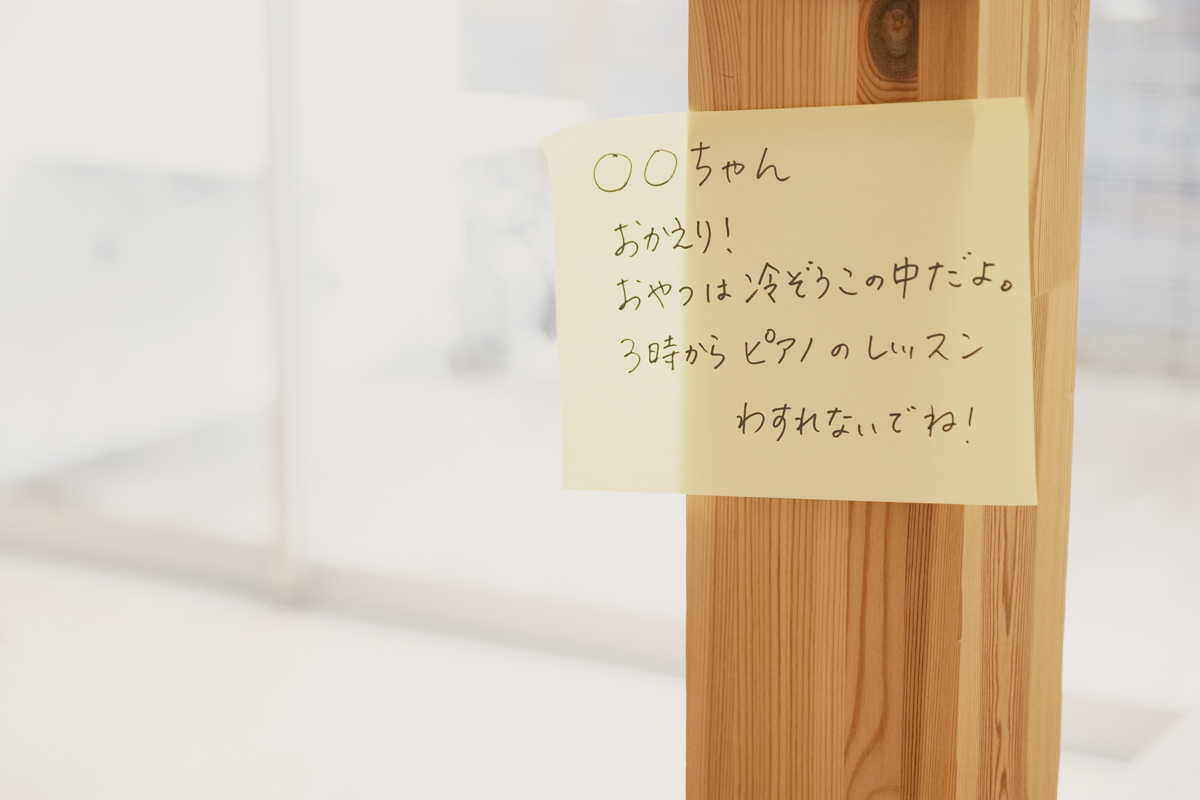 ○○ちゃん
おかえり!
おやつは冷ぞうこの中だよ。
3時からピアノのレッスン
わすれないでね!